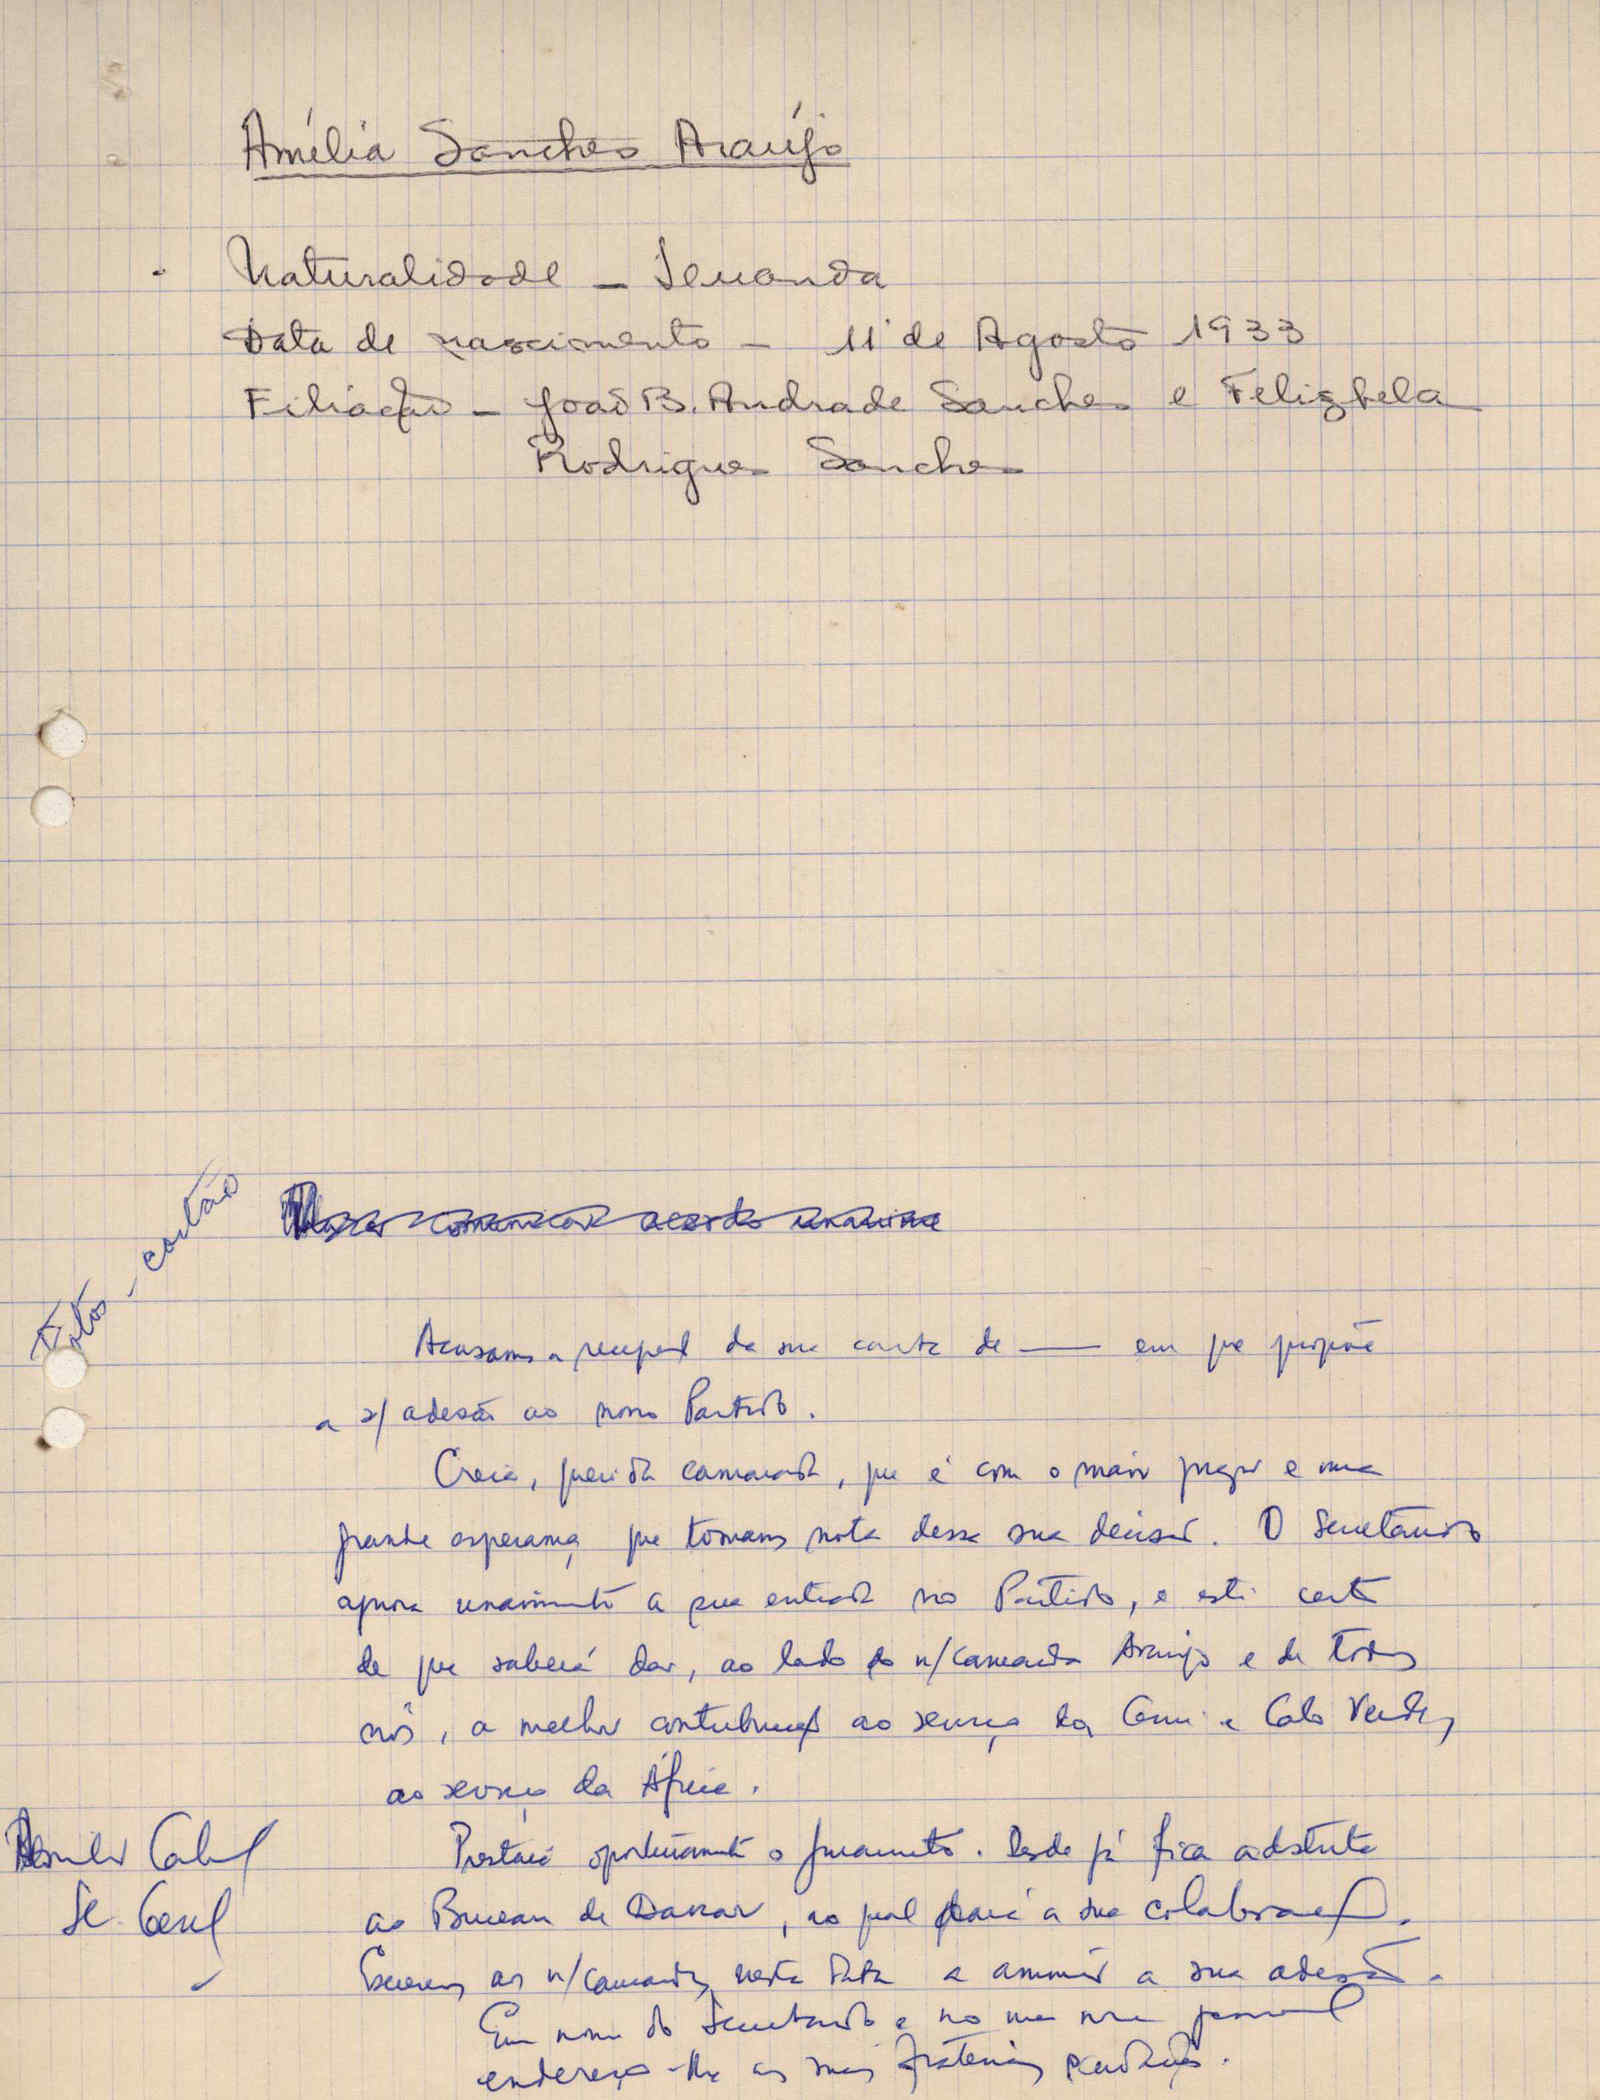 Amélia Sanches Araújo
Naturalidade - Luanda
Data de nascimento - 11 de Agosto 1933
Filiação - João B. Andrade Sanches e Felisbela
Rodrigues Sanches
Fotos - cartão
comunicar acordo unânime
Acusamos a recepção da sua carta de — em que propõe
a s/ adesão ao nosso Partido.
Creia, querida camarada, que é com o maior prazer e uma
grande esperança que tomamos nota dessa sua decisão. O Secretariado
aprova unanimemente a sua entrada no Partido, e está certo
de que saberá dar, ao lado do n/camarada Araújo e de todos
nós, a melhor contribuição ao serviço da Guiné e Cabo Verde,
ao serviço da África.
Prestará oportunamente o juramento. Desde já fica adstrita
ao Bureau de Dakar, ao qual dará a sua colaboração.
Escrevemos aos n/camaradas nesta data a anunciar a sua adesão.
Em nome do Secretariado e no meu nome pessoal
endereço-lhe as mais fraternais saudações.
Amílcar Cabral
Sec. Geral